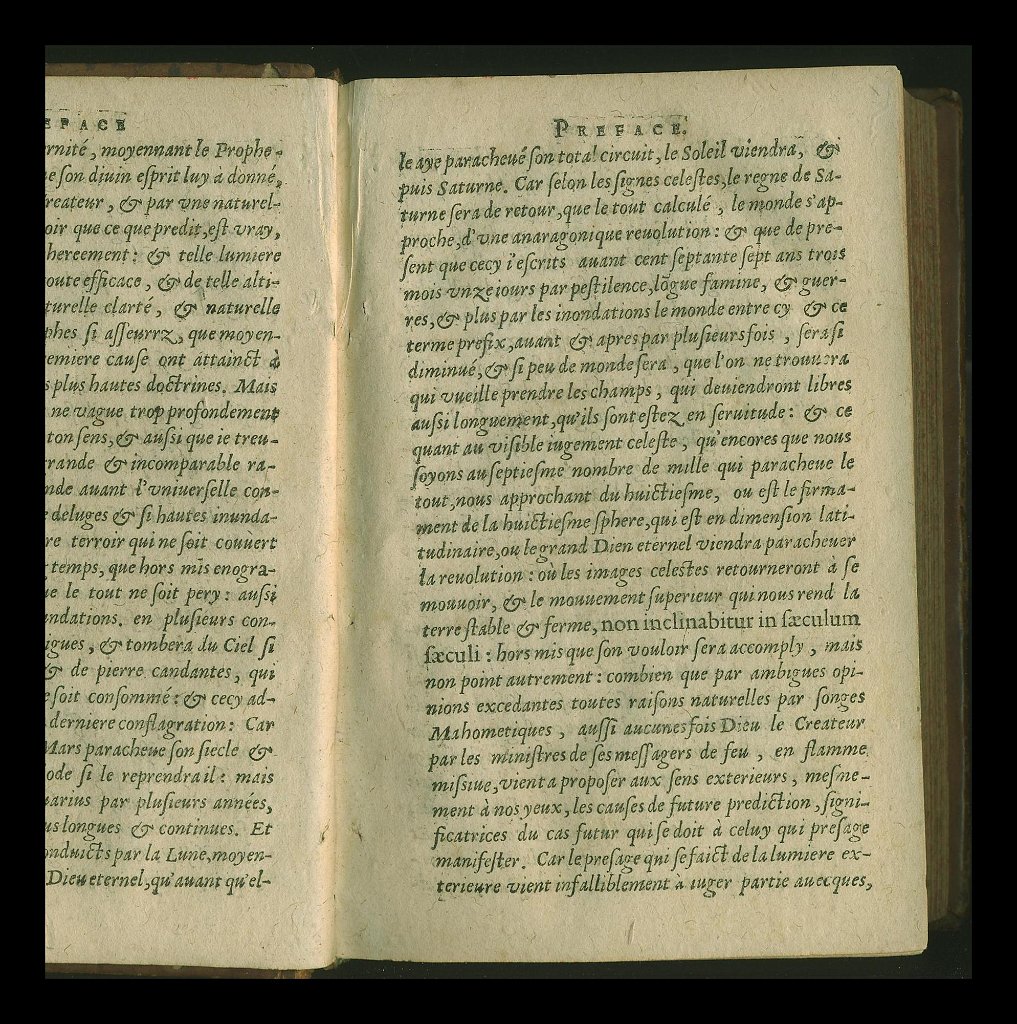 EFACE
rnité, moyennant le Prophe-
e son diuin esprit luy a donné,
reateur, & par vne naturel-
oir que ce que predit, est vray,
hereement: & telle lumiere
oute efficace, & de telle alti-
turelle clarté, & naturelle
phes si asseurrz, que moyen-
remiere cause ont attainct à
s plus hautes doctrines. Mais
ne vague trop profondement
ton sens, & aussi que ie treu-
rande & incomparable ra-
nde auant l'vniuerselle con-
e deluges & si hautes inunda-
re terroir qui ne soit couuert
temps, que hors mis enogra-
ue le tout ne soit pery: aussi
undations. en plusieurs con-
igues, & tombera du Ciel si
& de pierre candantes, qui
e soit consommé: & cecy ad-
derniere conflagration: Car
Mars paracheue son siecle &
ode si le reprendra il: mais
uarius par plusieurs années,
us longues & continues. Et
onduicts par la Lune, moyen-
Dieu eternel, qu'auant qu'el-
PREFACE.
le aye paracheué son total circuit, le Soleil viendra, &
puis Saturne. Car selon les signes celestes, le regne de Sa-
turne sera de retour, que le tout calculé, le monde s'ap-
proche, d'vne anaragonique reuolution: & que de pre-
sent que cecy i'escrits auant cent septante sept ans trois
mois vnze iours par pestilence, lõgue famine, & guer-
res, & plus par les inondations le monde entre cy & ce
terme prefix, auant & apres par plusieurs fois, sera si
diminué, & si peu de monde sera, que l'on ne trouuera
qui vueille prendre les champs, qui deuiendront libres
aussi longuement, qu'ils sont estez en seruitude: & ce
quant au visible iugement celeste, qu'encores que nous
soyons au septiesme nombre de mille qui paracheue le
tout, nous approchant du huictiesme, ou est le firma-
ment de la huictiesme sphere, qui est en dimension lati-
tudinaire, ou le grand Dien eternel viendra paracheuer
la reuolution: où les images celestes retourneront a se
mouuoir, & le mouuement superieur qui nous rend la
terre stable & ferme, non inclinabitur in sæculum
sæculi: hors mis que son vouloir sera accomply, mais
non point autrement: combien que par ambigues opi-
nions excedantes toutes raisons naturelles par songes
Mahometiques, aussi aucunes fois Dieu le Createur
par les ministres de ses messagers de feu, en flamme
missiue, vient a proposer aux sens exterieurs, mesme-
ment à nos yeux, les causes de future prediction, signi-
ficatrices du cas futur qui se doit à celuy qui presage
manifester. Car le presage qui se faict de la lumiere ex-
terieure vient infalliblement à iuger partie auecques,